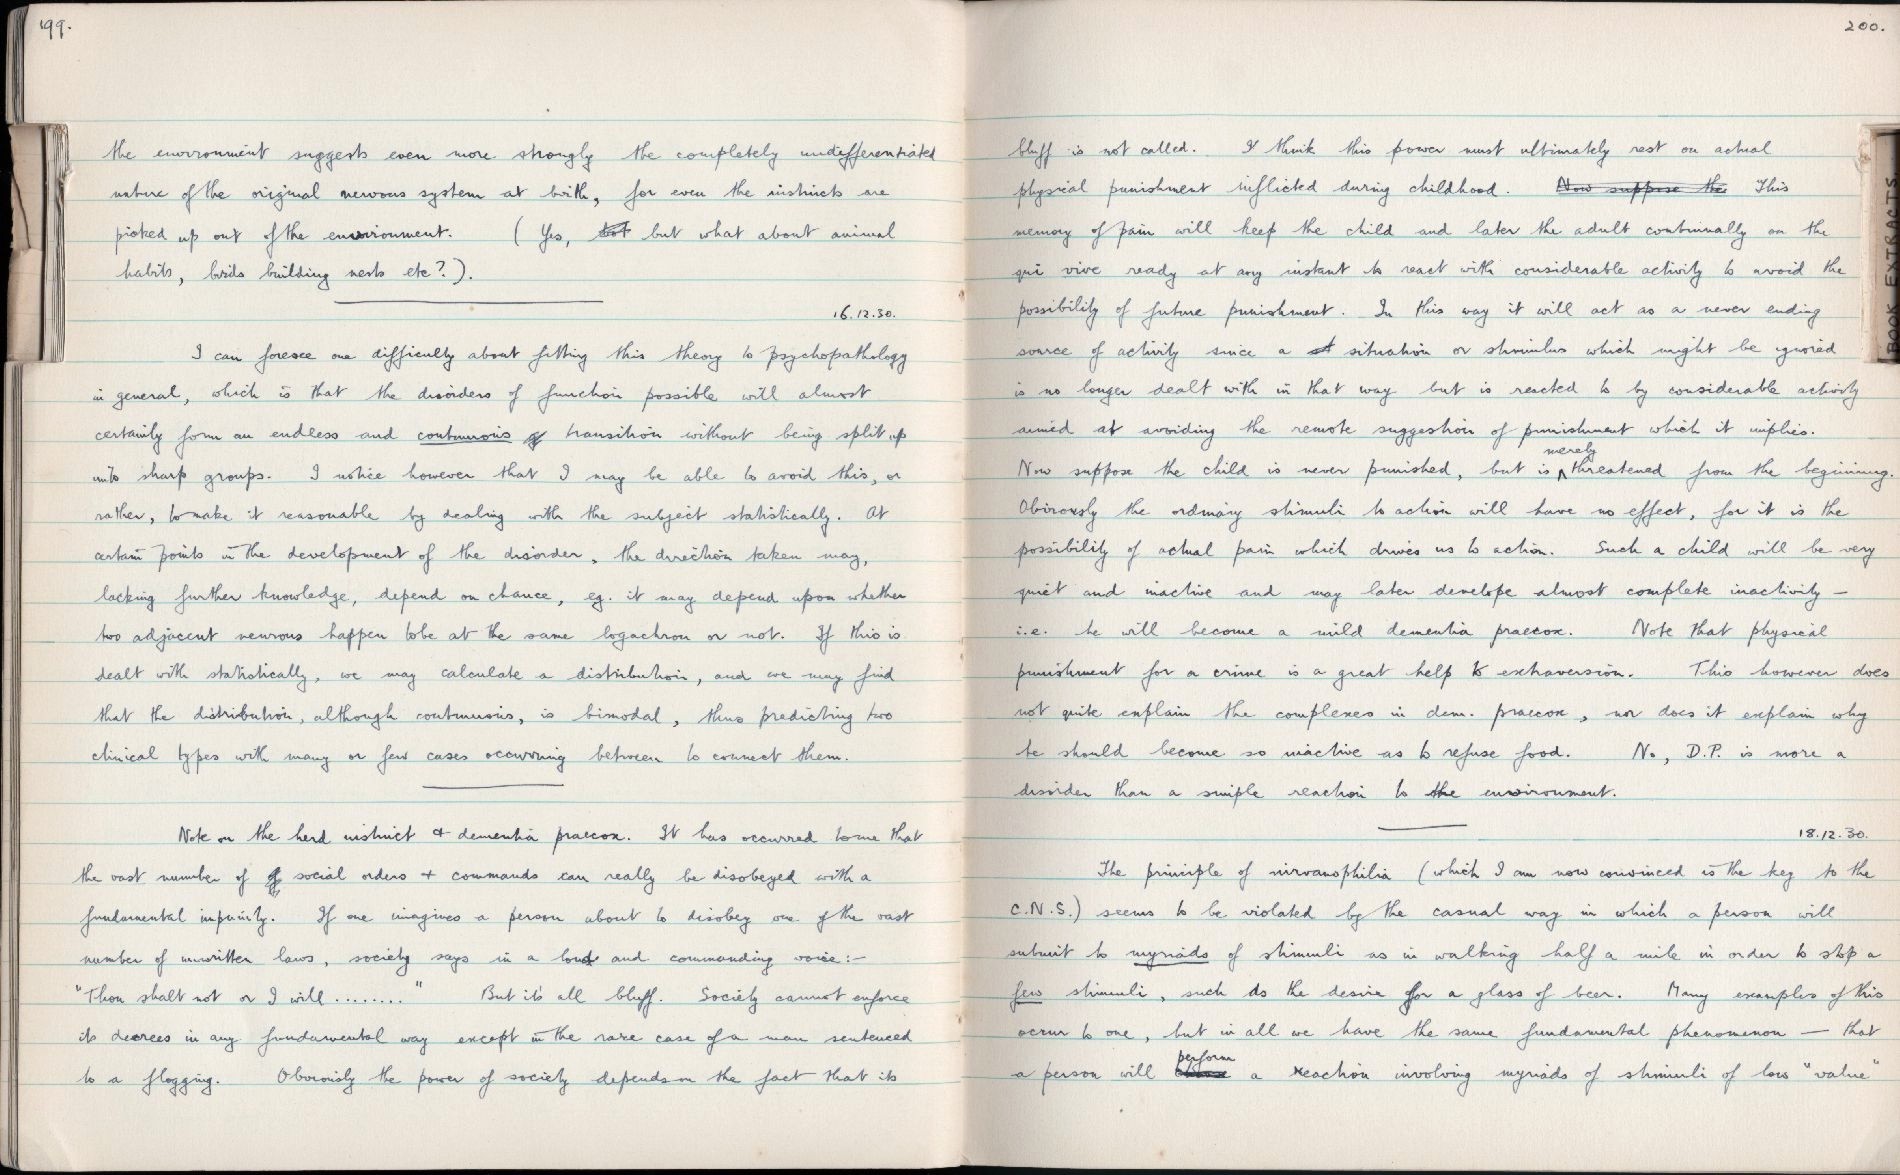 199.
the environment suggests even more strongly the completely undifferentiated
nature of the original nervous system at birth, for even the instincts are
picked up out of the environment. (Yes, but but what about animal
habits, birds building nests etc?).
16.12.30.
I can foresee one difficulty about fitting this theory to psychopathology
in general, which is that the disorders of function possible will almost
certainly form an endless and continuous transition without being split up
into sharp groups. I notice however that I may be able to avoid this, or
rather, to make it reasonable by dealing with the subject statistically. At
certain points in the development of the disorder, the direction taken may,
lacking further knowledge, depend on chance, eg. it may depend upon whether
two adjacent neurons happen to be at the same logachron or not. If this is
dealt with statistically, we may calculate a distribution, and we may find
that the distribution, although continuous, is bimodal, thus predicting two
clinical types with many or few cases occurring between to connect them.
Note on the herd instinct & dementia praecox. It has occurred to me that
the vast number of of social orders + commands can really be disobeyed with a
fundamental impunity. If one imagines a person about to disobey one of the vast
number of unwritten laws, society says in a loud and commanding voice:-
"Thou shalt not or I will ........" But it's all bluff. Society cannot enforce
its decrees in any fundamental way except in the rare case of a man sentenced
to a flogging. Obviously the power of society depends on the fact that its
200.
bluff is not called. I think this power must ultimately rest on actual
physical punishment inflicted during childhood. Now suppose the This
memory of pain will keep the child and later the adult continually on the
qui vive ready at any instant to react with considerable activity to avoid the
possibility of future punishment. In this way it will act as a never ending
source of activity since a st situation or stimulus which might be ignored
is no longer dealt with in that way but is reacted to by considerable activity
aimed at avoiding the remote suggestion of punishment which it implies.
Now suppose the child is never punished, but is merely threatened from the beginning.
Obviously the ordinary stimuli to action will have no effect, for it is the
possibility of actual pain which drives us to action. Such a child will be very
quiet and inactive and may later develope almost complete inactivity —
i.e. he will become a mild dementia praecox. Note that physical
punishment for a crime is a great help to extraversion. This however does
not quite explain the complexes in dem. praecox, nor does it explain why
he should become so inactive as to refuse food. No, D.P. is more a
disorder than a simple reaction to the environment.
18.12.30.
The principle of nirvanophilia (which I am now convinced is the key to the
C.N.S.) seems to be violated by the casual way in which a person will
submit to myriads of stimuli as in walking half a mile in order to stop a
few stimuli, such as the desire for a glass of beer. Many examples of this
occur to one, but in all we have the same fundamental phenomenon — that
a person will perform a reaction involving myriads of stimuli of low "value"
BOOK EXTRACTS